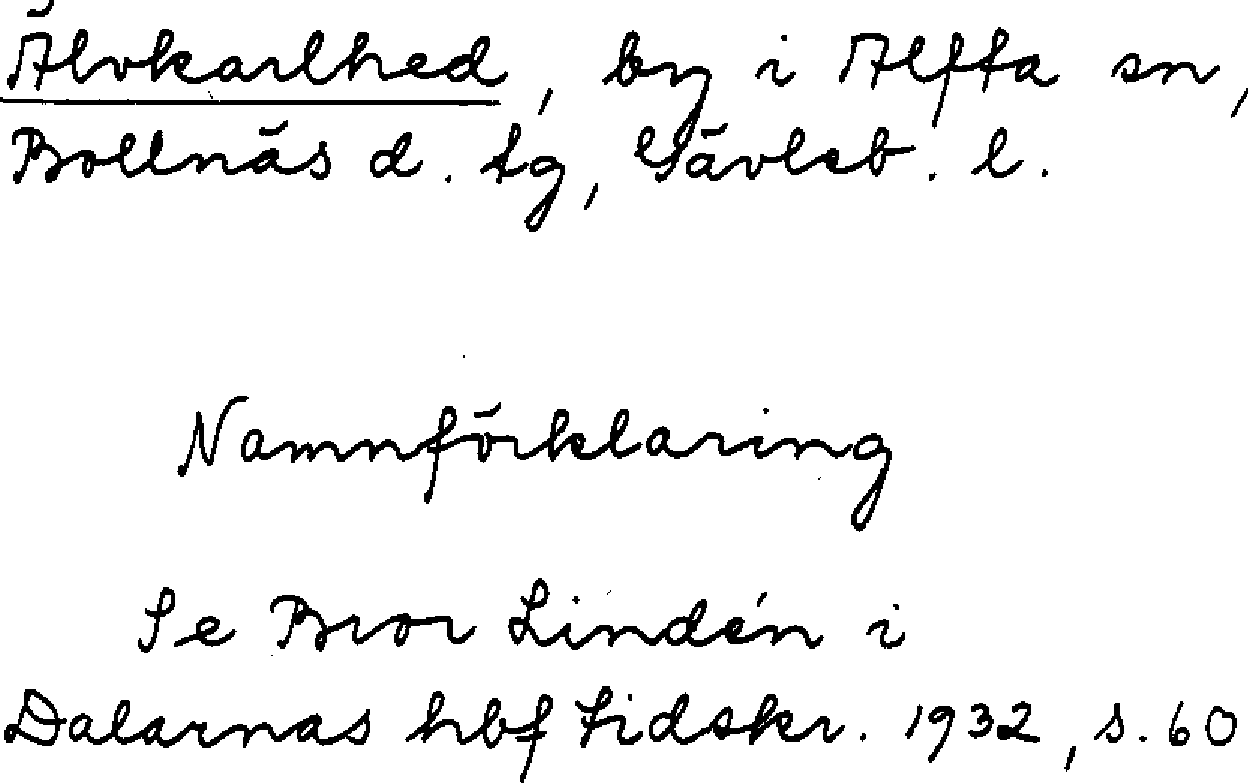 Älvkarlhed, by i Alfta sn,
Bollnäs d. tg, Gävleb. l.
Namnförklaring
Se Bror Lindén i
Dalarnas hbf tidskr. 1932, s. 60